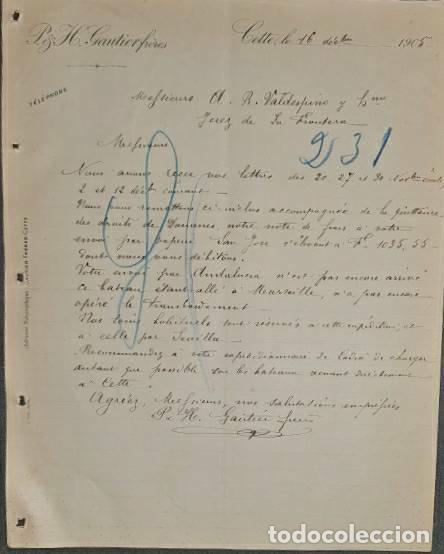 P. & H. Gautier frères
Cette, le 16 décbre 1905
TÉLÉPHONE
Messieurs A. R. Valdespino y Hno
Jerez de La Frontera
2531
Messieurs
Nous avons reçu vos lettres des 20, 27 et 30 Novbre
2 et 12 décbt courant
Nous vous remettons ci-inclus accompagnée de la quittance
des droits de Douanes, notre note de frais à votre
envoi par vapeur San Jose s'élevant à F. 1035,55
dont nous vous débitons.
Votre envoi par Andalucia n'est pas encore arrivé
ce bateau étant allé à Marseille, n'a pas encore
opéré le transbordement
Nos soins habituels sont réservés à cette expédition et
à celle par Sevilla
Recommandez à votre expéditionnaire de Cadix de charger
autant que possible sur les bateaux venant directement
à Cette.
Agréez, Messieurs, nos salutations empressées
P. H. Gautier frères
todocoleccion.net